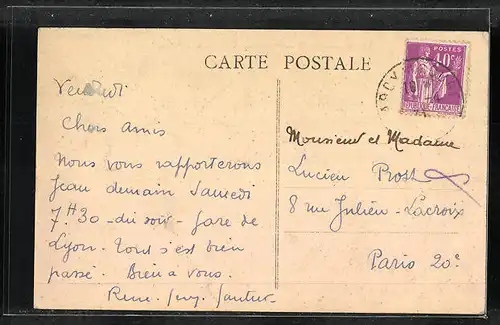 CARTE POSTALE
POSTES
40c
REPUBLIQUE FRANÇAISE
Vendredi
Chers Amis
Nous vous rapporterons
Jean demain Samedi
7H30 - du soir - gare de
Lyon. Tout s'est bien
passé. Bien à vous.
Monsieur et Madame
Lucien Prost
8 rue Julien - Lacroix
Paris 20e